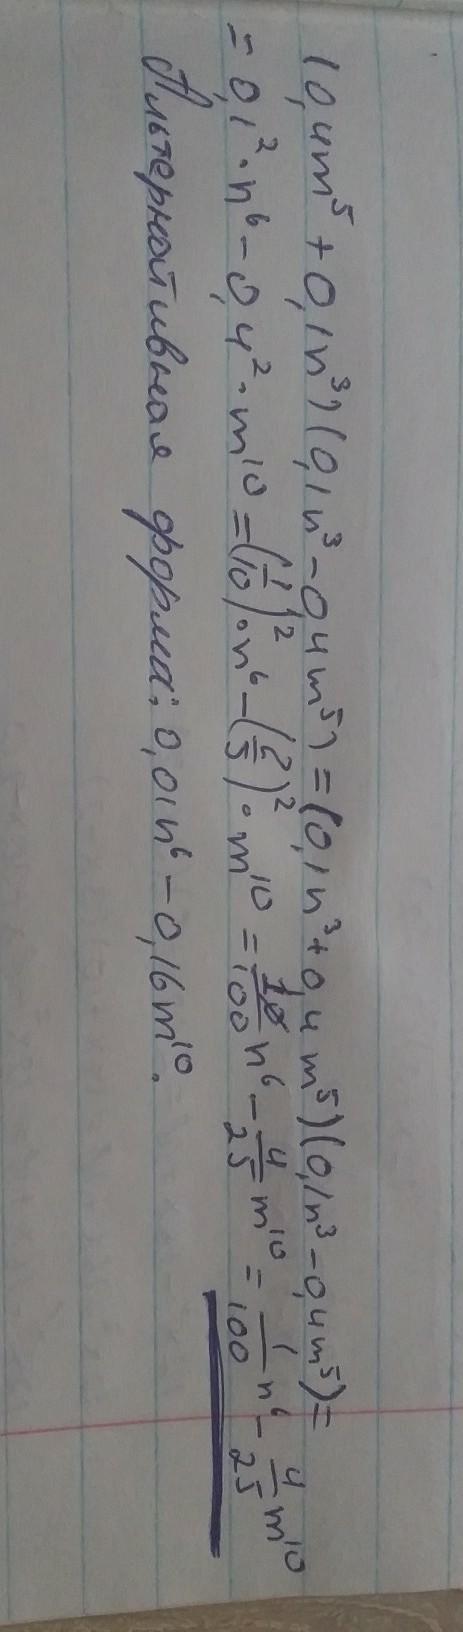 (0,4m⁵ + 0,1n³)(0,1n³ - 0,4m⁵) = (0,1n³ + 0,4m⁵)(0,1n³ - 0,4m⁵) =
= 0,1² · n⁶ - 0,4² · m¹⁰ = (1/10)² · n⁶ - (2/5)² · m¹⁰ = 1/100 n⁶ - 4/25 m¹⁰ = 1/100 n⁶ - 4/25 m¹⁰
Альтернативная форма: 0,01n⁶ - 0,16m¹⁰.